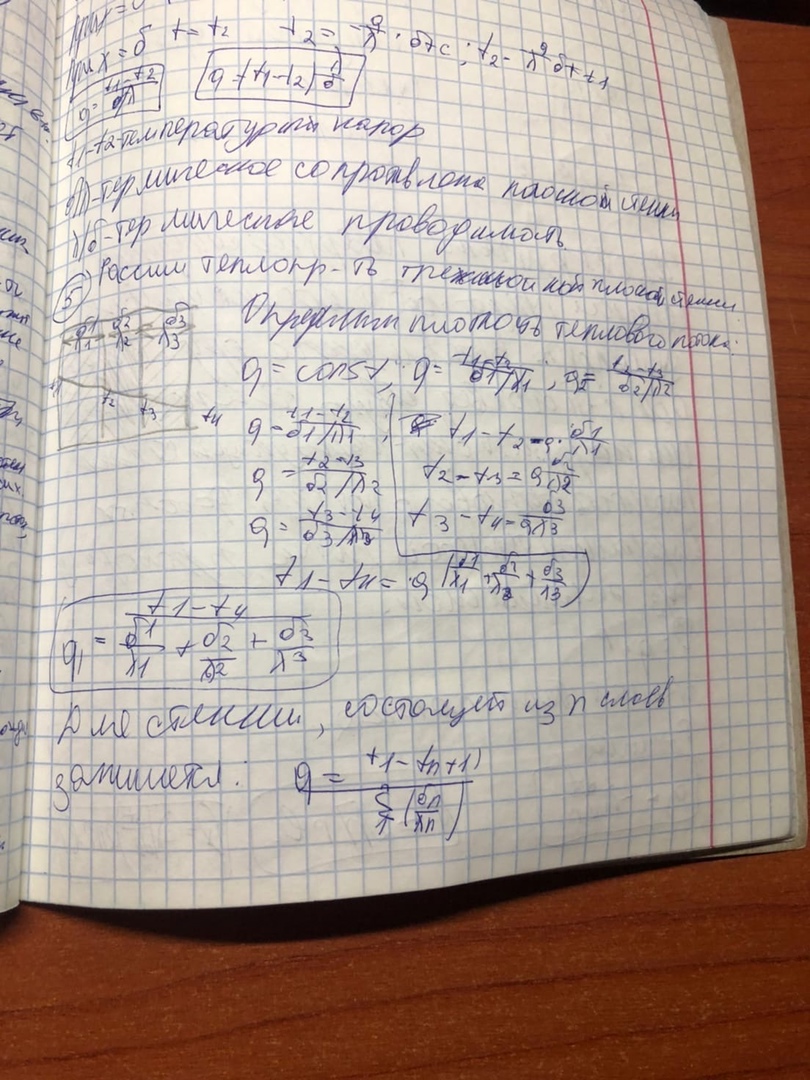 при x = δ t = t2 t2 = -q/λ · δ + c ; t2 = -q/λ δ + t1
q = (t1-t2)/(δ/λ) q = (t1-t2) λ/δ
t1-t2-температурный напор
δ/λ-термическое сопротвлени плоской стенки
λ/δ-термическое проводимость
5 Рассмм теплопр-ть трехслойной плоской стенки
δ1/λ1 δ2/λ2 δ3/λ3
Определим плотность теплового потока:
t1 t2 t3 t4
q = const; q = (t1-t2)/(δ1/λ1) ; q = (t2-t3)/(δ2/λ2)
q = (t1-t2)/(δ1/λ1) ; t1-t2 = q·δ1/λ1
q = (t2-t3)/(δ2/λ2) t2-t3 = q δ2/λ2
q = (t3-t4)/(δ3/λ3) t3-t4 = q δ3/λ3
t1-t4 = q (δ1/λ1 + δ2/λ2 + δ3/λ3)
q = (t1-t4)/(δ1/λ1 + δ2/λ2 + δ3/λ3)
Для стенки, состоящей из n слоев
запишется: q = (t1-tn+1)/(Σ (δn/λn))